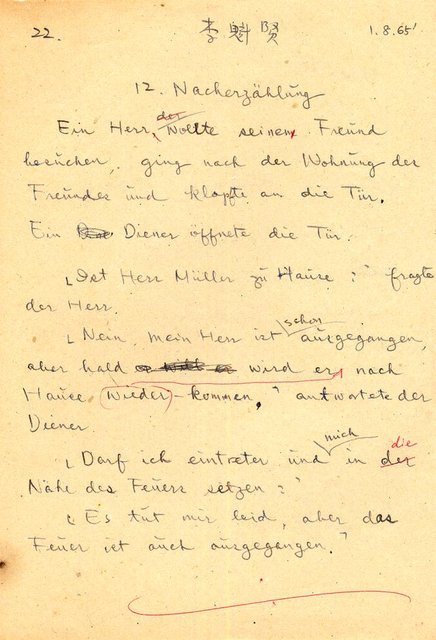 22. 李魁賢 1.8.65'
12. Nacherzählung
der
Ein Herr, wollte seinen Freund
besuchen, ging nach der Wohnung des
Freundes und klopfte an die Tür.
Ein Diener öffnete die Tür.
„Ist Herr Müller zu Hause?" fragte
der Herr.
schon
„Nein, mein Herr ist ausgegangen,
aber bald wird er nach
Hause wieder-kommen," antwortete der
Diener.
mich die
„Darf ich eintreten und in der
Nähe des Feuers setzen?"
„Es tut mir leid, aber das
Feuer ist auch ausgegangen."